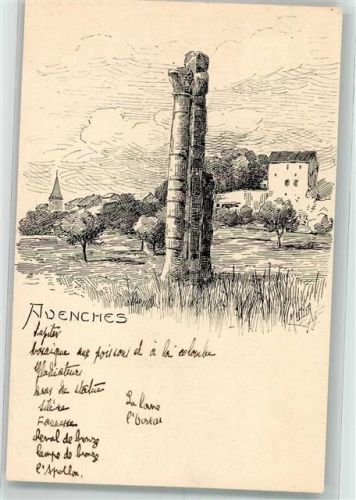 AVENCHES
Jupiter
Mosaïque aux poissons et à la colombe
Gladiateurs
bras de statue
Silène
La Louve
Faunesse
l'Oiseau
Cheval de bronze
Lampe de bronze
l'Apollon.